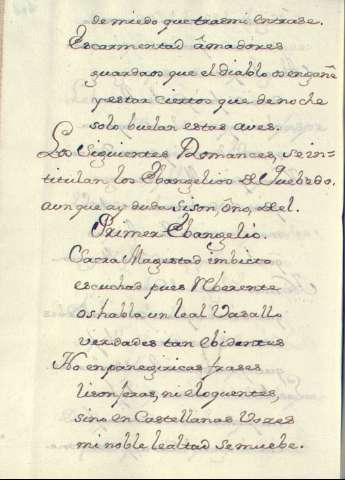 de miedo que tras mi entrase.
Escarmentad amadores
guardaos que el diablo os engañe
y estar ciertos que de noche
solo buelan estas aves.
Los Siguientes Romances, se in=
titulan, los Ebangelios de Quebedo.
aunque ay duda si son, ô no, del.
Primer Ebangelio.
Sacra Magestad imbicta
escuchad pues
os habla un leal Vasallo
verdades tan ebidentes
No en panegiricas frases
lisonjeras, ni eloquentes,
sino en Castellanas Vozes
mi noble lealtad se muebe.